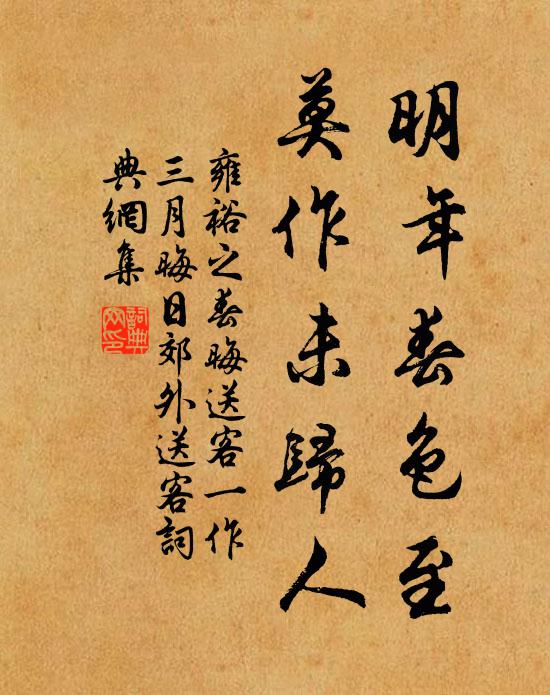 明年春色至
莫作未歸人
雍裕之春晦送客一作
三月晦日郊外送客詞
典網集
詞典网印